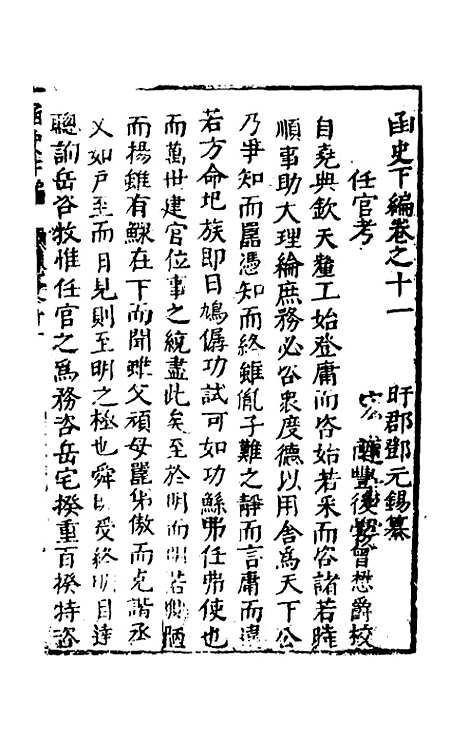 函史下編卷之十一
盱郡鄧元錫纂
任官考
南豐後學曾懋爵校
自堯典欽天釐工始登庸而咨始若釆而容諸若時
順事助大理綸庶務必咨衆度德以用舎爲天下公
乃爭知而嚚憑知而終雖胤子難之靜而言庸而違
若方命圯族即曰鳩僝功試可如功鯀弗任弗使也
而萬世建官位事之統盡此矣至於明而明若側陋
而揚雖有鰥在下而聞雖父頑母嚚弟傲而克諧丞
乂如戶至而目見則至明之極也舜以受終明目達
聰詢岳咨牧惟任官之爲務咨岳宅揆重百揆特咨